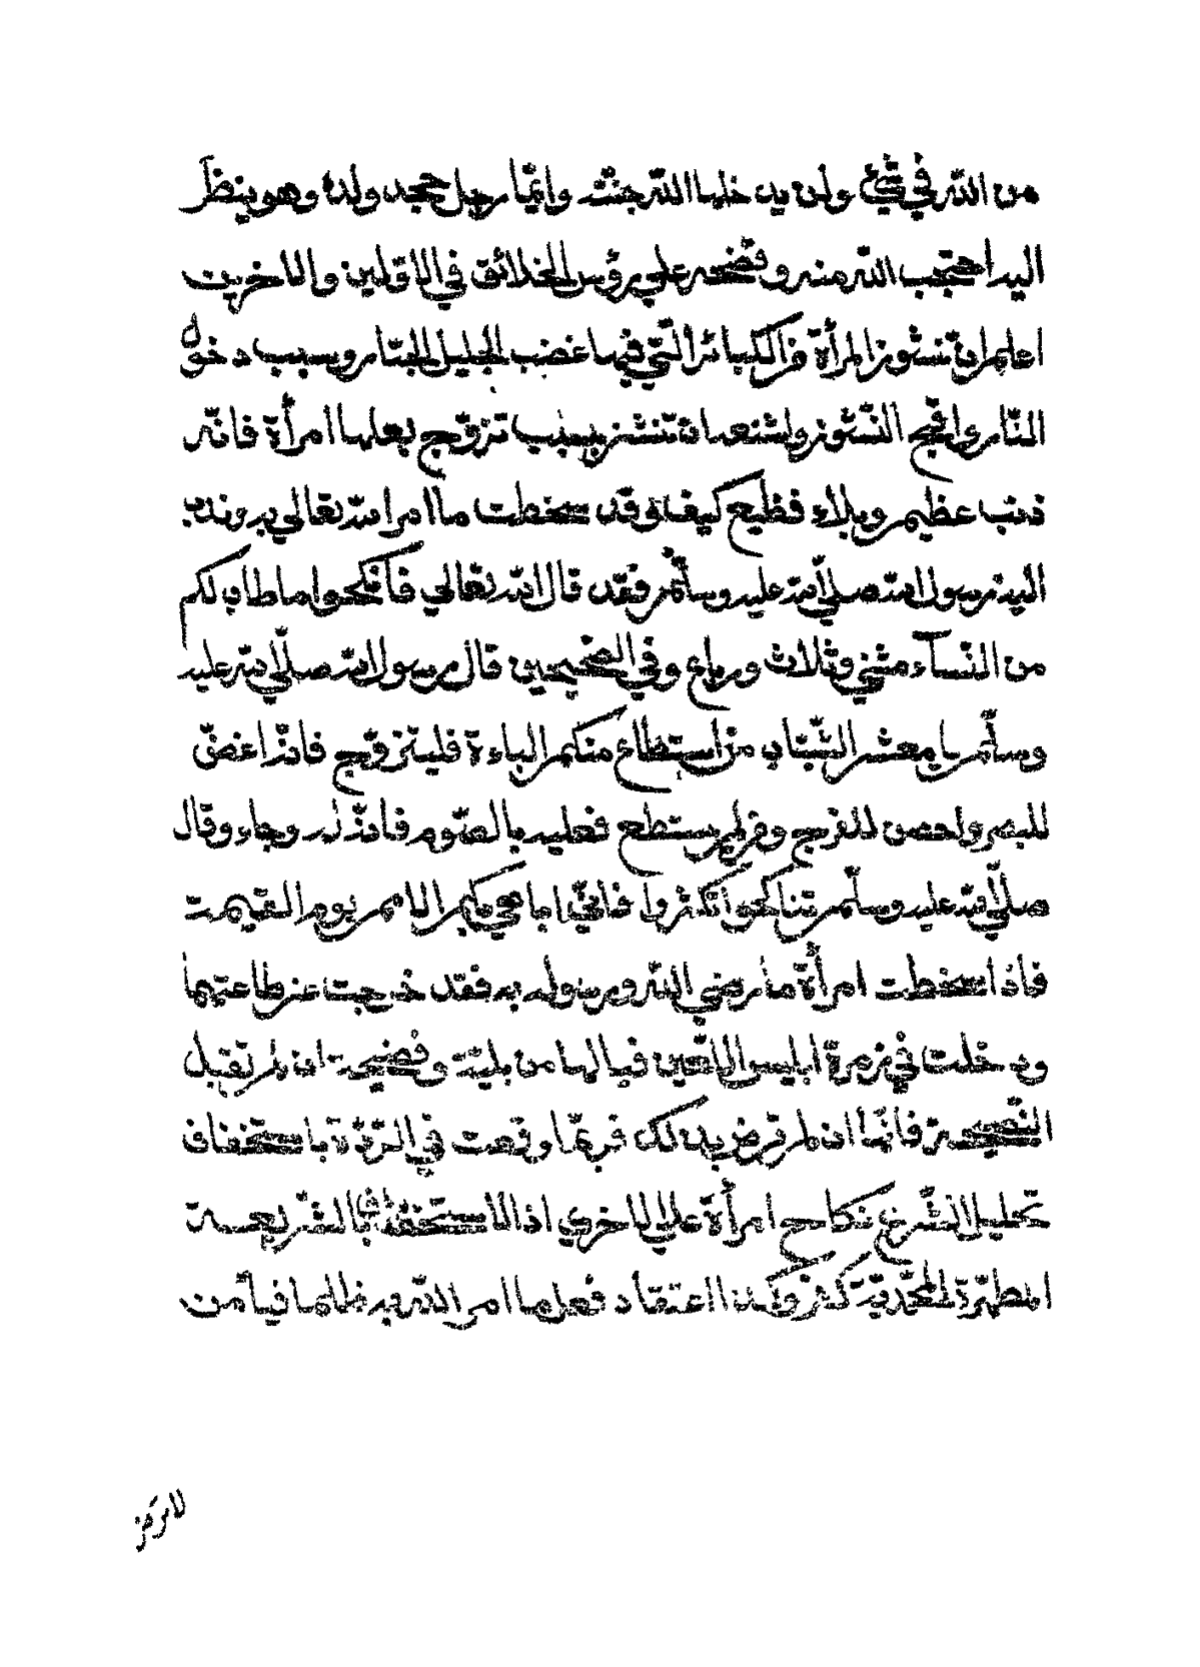 من الله في شيء ولن يدخلها الله جنته وايما رجل جحد ولده وهو ينظر
اليه احتجب الله منه وفضحه علي رؤس الخلائق في الاولين والاخرين
اعلم ان نشوز المرأة من الكبائر التي فيها غضب الجليل الجبار وسبب دخول
النار واقبح النشوز واشنعه ان تنشز بسبب تزوج بعلها امرأة فانه
ذنب عظيم وبلاء فظيع كيف وقد سخطت ما امر الله تعالي به وندب
اليه رسول الله صلي الله عليه وسلم فقد قال الله تعالي فانكحوا ما طاب لكم
من النسآء مثني وثلاث ورباع وفي الصحيحين قال رسول الله صلي الله عليه
وسلم يا معشر الشباب من استطاع منكم الباءة فليتزوج فانه اغض
للبصر واحصن للفرج ومن لم يستطع فعليه بالصوم فانه له وجاء وقال
صلي الله عليه وسلم تناكحوا تكثروا فاني اباهي بكم الامم يوم القيمة
فاذا سخطت امرأة ما رضي الله ورسوله به فقد خرجت عن طاعتهما
ودخلت في زمرة ابليس اللعين فيالها من بلية وفضيحة ان لم تقبل
النصيحة فانها ان لم ترض بذلك فربما وقعت في الردة باستخفاف
تحليل الشرع نكاح امرأة علي الاخري اذ الاستخفاف بالشريعة
المطهرة المحمدية كفر وكذا اعتقاد فعل ما امر الله به ظلما فيا من